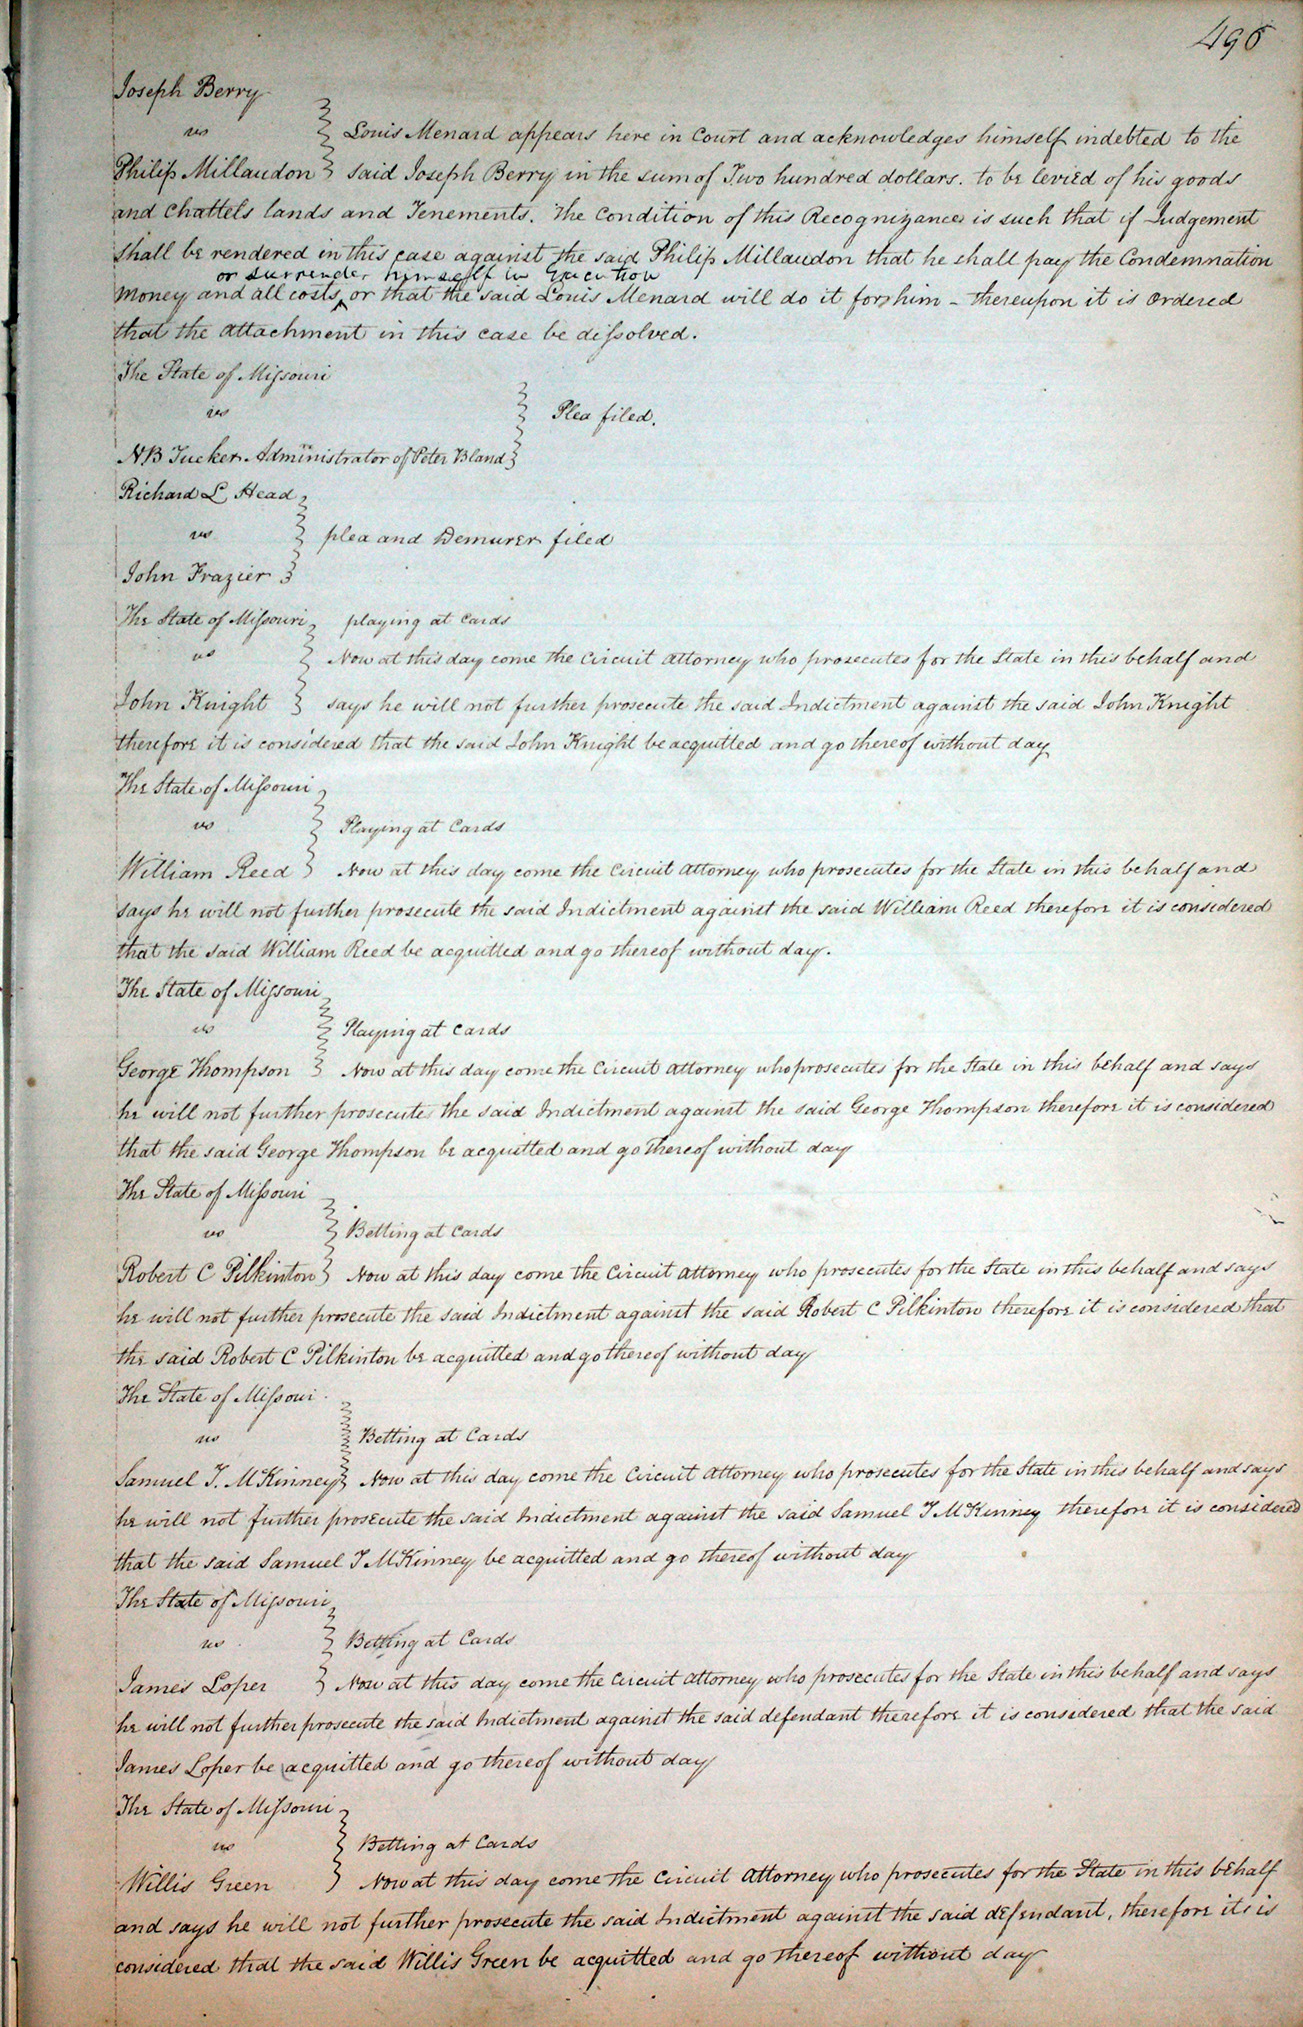 496
Joseph Berry
vs Louis Menard appears here in Court and acknowledges himself indebted to the
Philip Millaudon said Joseph Berry in the sum of Two hundred dollars. to be levied of his goods
and chattels lands and Tenements. The Condition of this Recognizance is such that if Judgement
shall be rendered in this case against the said Philip Millaudon that he shall pay the Condemnation
or surrender himself in Execution
money and all costs, or that the said Louis Menard will do it for him - thereupon it is ordered
that the attachment in this case be dissolved.
The State of Missouri
vs Plea filed.
N B Tucker Administrator of Peter Bland
Richard L Head
vs plea and Demurer filed
John Frazier
The State of Missouri playing at Cards
vs Now at this day come the Circuit attorney who prosecutes for the State in this behalf and
John Knight says he will not further prosecute the said Indictment against the said John Knight
therefore it is considered that the said John Knight be acquitted and go thereof without day
The State of Missouri
vs Playing at Cards
William Reed Now at this day come the Circuit attorney who prosecutes for the State in this behalf and
says he will not further prosecute the said Indictment against the said William Reed therefore it is considered
that the said William Reed be acquitted and go thereof without day.
The State of Missouri
vs Playing at Cards
George Thompson Now at this day come the Circuit attorney who prosecutes for the State in this behalf and says
he will not further prosecute the said Indictment against the said George Thompson therefore it is considered
that the said George Thompson be acquitted and go thereof without day
The State of Missouri
vs Betting at Cards
Robert C Pilkinton Now at this day come the Circuit attorney who prosecutes for the State in this behalf and says
he will not further prosecute the said Indictment against the said Robert C Pilkinton therefore it is considered that
the said Robert C Pilkinton be acquitted and go thereof without day
The State of Missoui
vs Betting at Cards
Samuel T. McKinney Now at this day come the Circuit attorney who prosecutes for the State in this behalf and says
he will not further prosecute the said Indictment against the said Samuel T McKinney therefore it is considered
that the said Samuel T McKinney be acquitted and go thereof without day
The State of Missouri
vs Betting at Cards
James Loper Now at this day come the Circuit attorney who prosecutes for the State in this behalf and says
he will not further prosecute the said Indictment against the said defendant therefore it is considered that the said
James Loper be acquitted and go thereof without day
The State of Missouri
vs Betting at Cards
Willis Green Now at this day come the Circuit attorney who prosecutes for the State in this behalf
and says he will not further prosecute the said Indictment against the said defendant, therefore it is is
considered that the said Willis Green be acquitted and go thereof without day